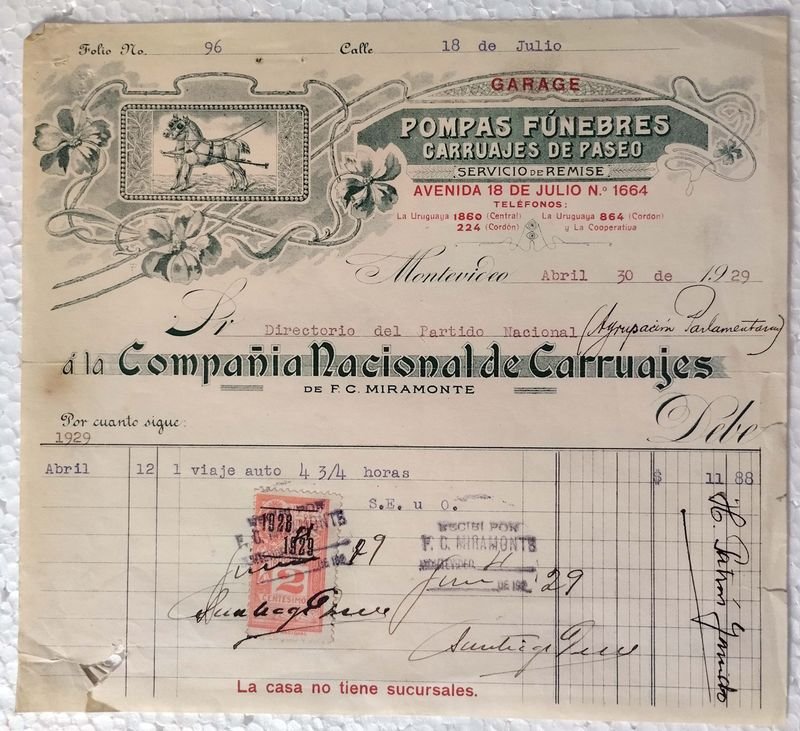 Folio No. 96 Calle 18 de Julio
GARAGE
POMPAS FÚNEBRES
CARRUAJES DE PASEO
SERVICIO DE REMISE
AVENIDA 18 DE JULIO N.º 1664
TELÉFONOS:
La Uruguaya 1860 (Central) La Uruguaya 864 (Cordon)
224 (Cordón) y La Cooperativa
Montevideo Abril 30 de 1929
Sr. Directorio del Partido Nacional (Agrupación Parlamentaria)
á la Compañia Nacional de Carruajes
DE F. C. MIRAMONTE
Debe
Por cuanto sigue:
1929
Abril 12 1 viaje auto 4 3/4 horas $ 11 88
S.E.u O.
RECIBI POR
F. C. MIRAMONTE
DE 192
29
1928
1929
2
CENTESIMOS
RECIBI POR
F. C. MIRAMONTE
MONTEVIDEO
DE 192
29
Santiago
Santiago
La casa no tiene sucursales.